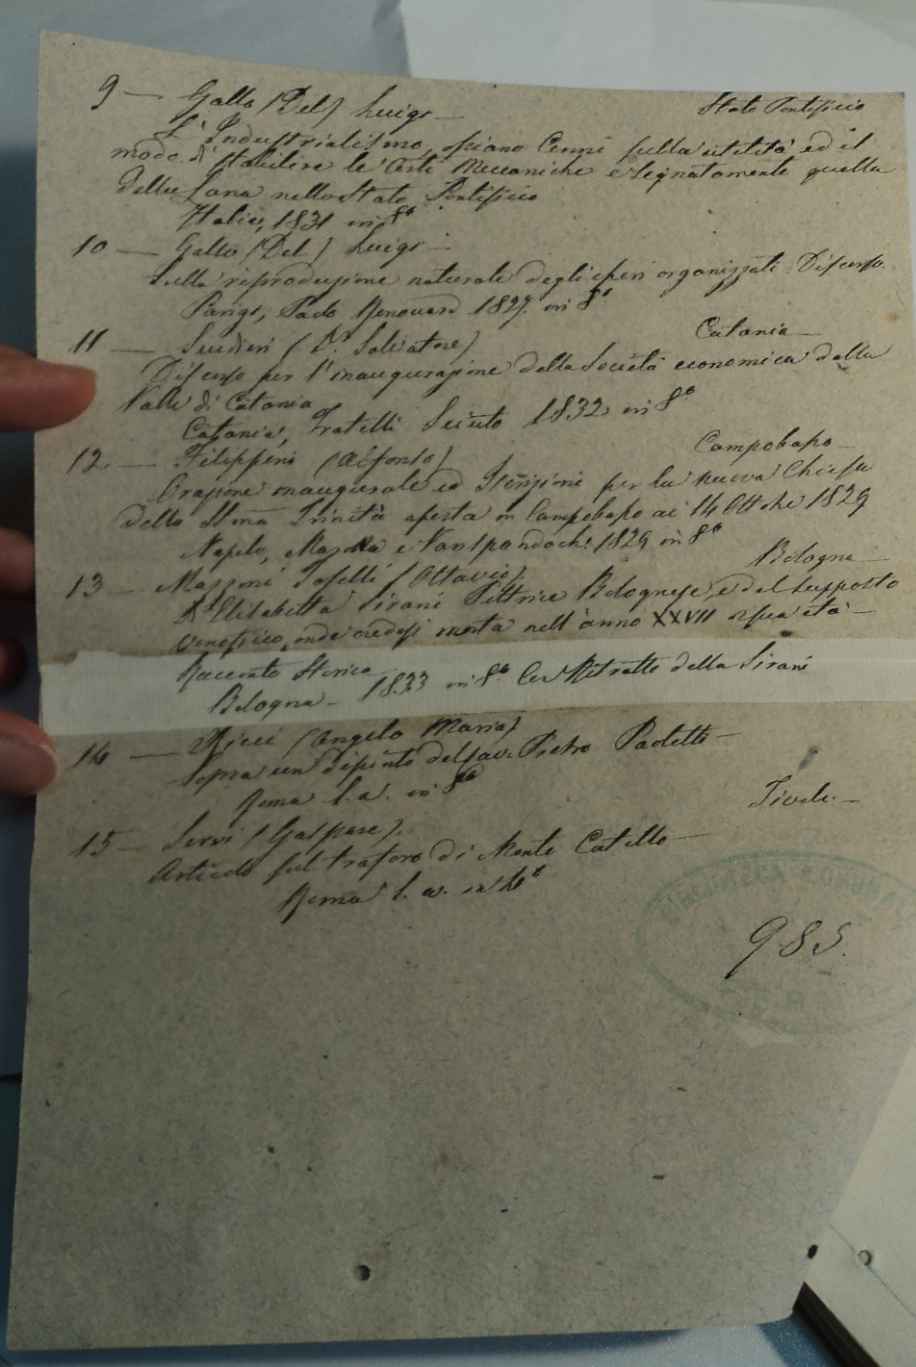 9 — Gallo (Del) Luigi — Stato Pontificio
L'Industrialismo, ossiano Cenni sulla utilità ed il
modo di stabilire le Arti Meccaniche e segnatamente quella
della Lana nello Stato Pontificio
Italia, 1831 in 8°
10 — Gallo (Del) Luigi —
Sulla riproduzione naturale degli esseri organizzati Discorso.
Parigi, Paolo Renouard 1827. in 8°
11 — Scuderi (Dr. Salvatore) Catania —
Discorso per l'inaugurazione della Società economica della
Valle di Catania
Catania, Fratelli Sciuto 1832 in 8°
12. — Filipponi (Alfonso) Campobasso —
Orazione inaugurale ed Iscrizioni per la nuova Chiesa
della SSma Trinità aperta in Campobasso ai 14 Ottobre 1829
Napoli, e 1829 in 8°
13 — Mazzoni Toselli (Ottavio) Bologna —
Di Elisabetta Sirani Pittrice Bolognese, e del supposto
veneficio, onde credesi morta nell'anno XXVII di sua età —
Racconto Storico —
Bologna — 1833 in 8° Col Ritratto della Sirani
14 — Ricci (Angelo Maria)
Sopra un dipinto del Cav. Pietro Paoletti —
Roma s.a. in 8°
Tivoli. —
15 — Servi (Gaspare).
Articolo sul traforo di Monte Catillo —
Roma s. a. in 4°
985.